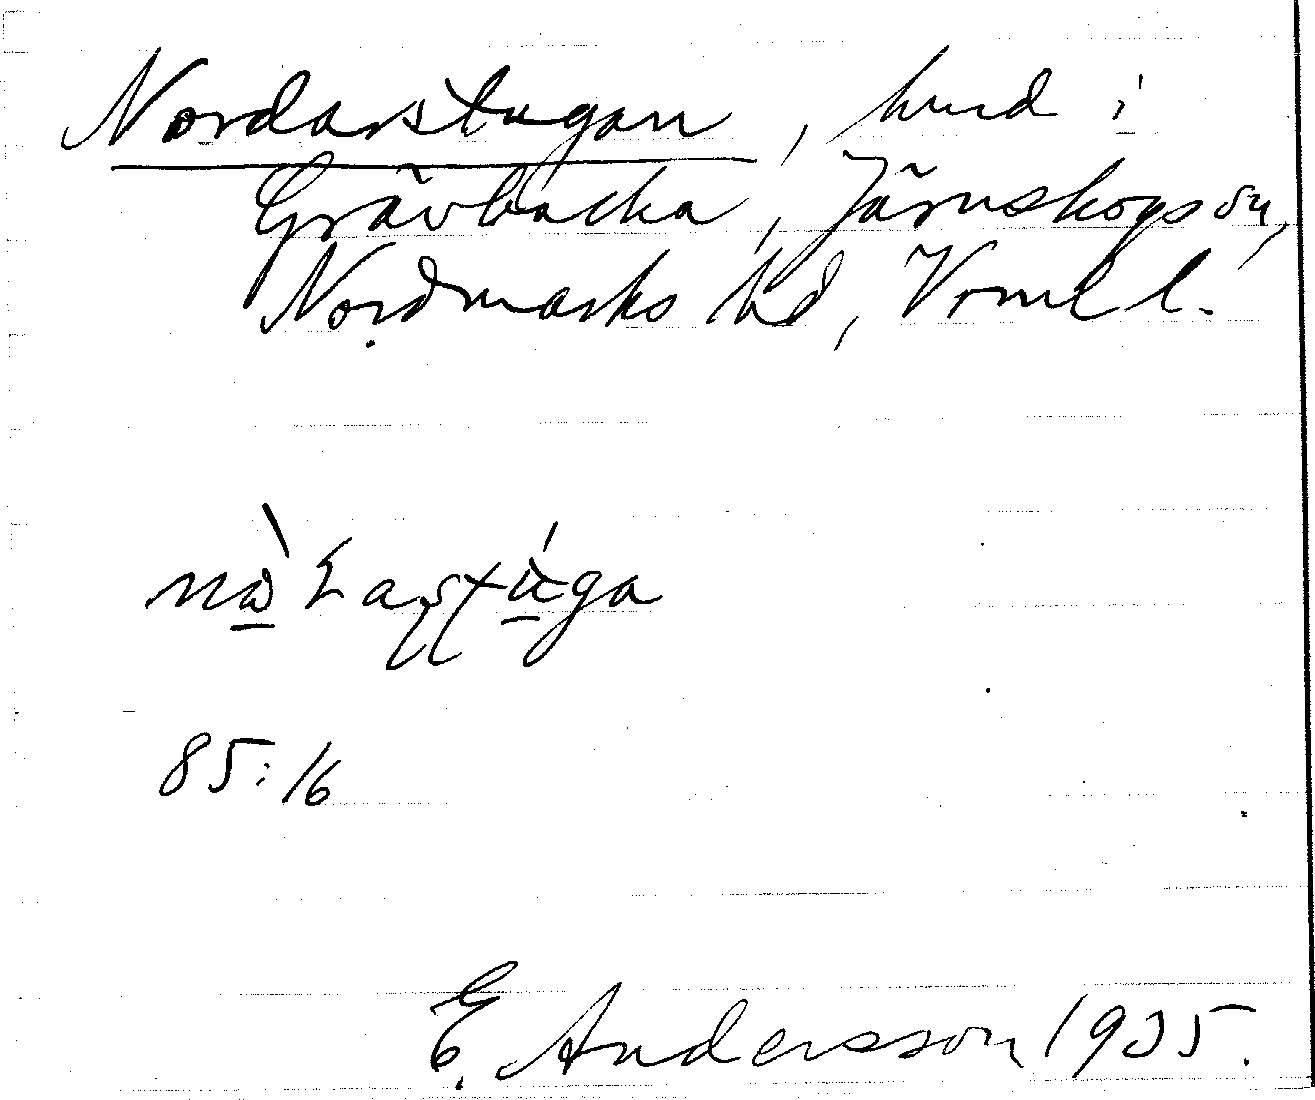 Nordarstugan, hmd i
Grävbacka, Järnskogs sn,
Nordmarks hd, Vrml l.
85:16
E. Andersson 1935.